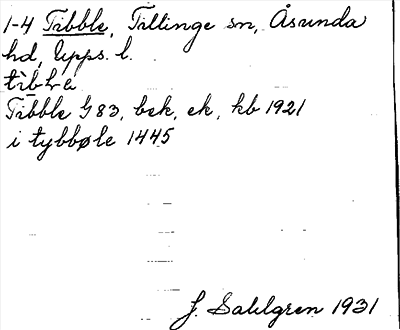 1-4 Tibble, Tillinge sn, Åsunda
hd, Upps. l.
Tibble G 83, bek, ek, kb 1921
i tybbøle 1445
J. Sahlgren 1931